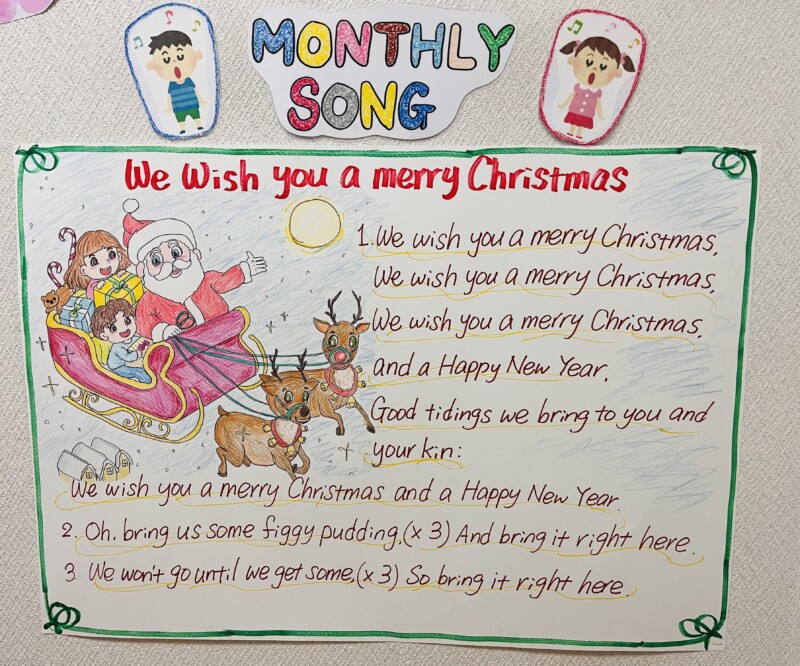 MONTHLY
SONG
We Wish you a merry Christmas
1. We wish you a merry Christmas,
We wish you a merry Christmas,
We wish you a merry Christmas,
and a Happy New Year.
Good tidings we bring to you and
your kin:
We wish you a merry Christmas and a Happy New Year.
2. Oh. bring us some figgy pudding,(x 3) And bring it right here.
3. We won't go until we get some,(x 3) So bring it right here.